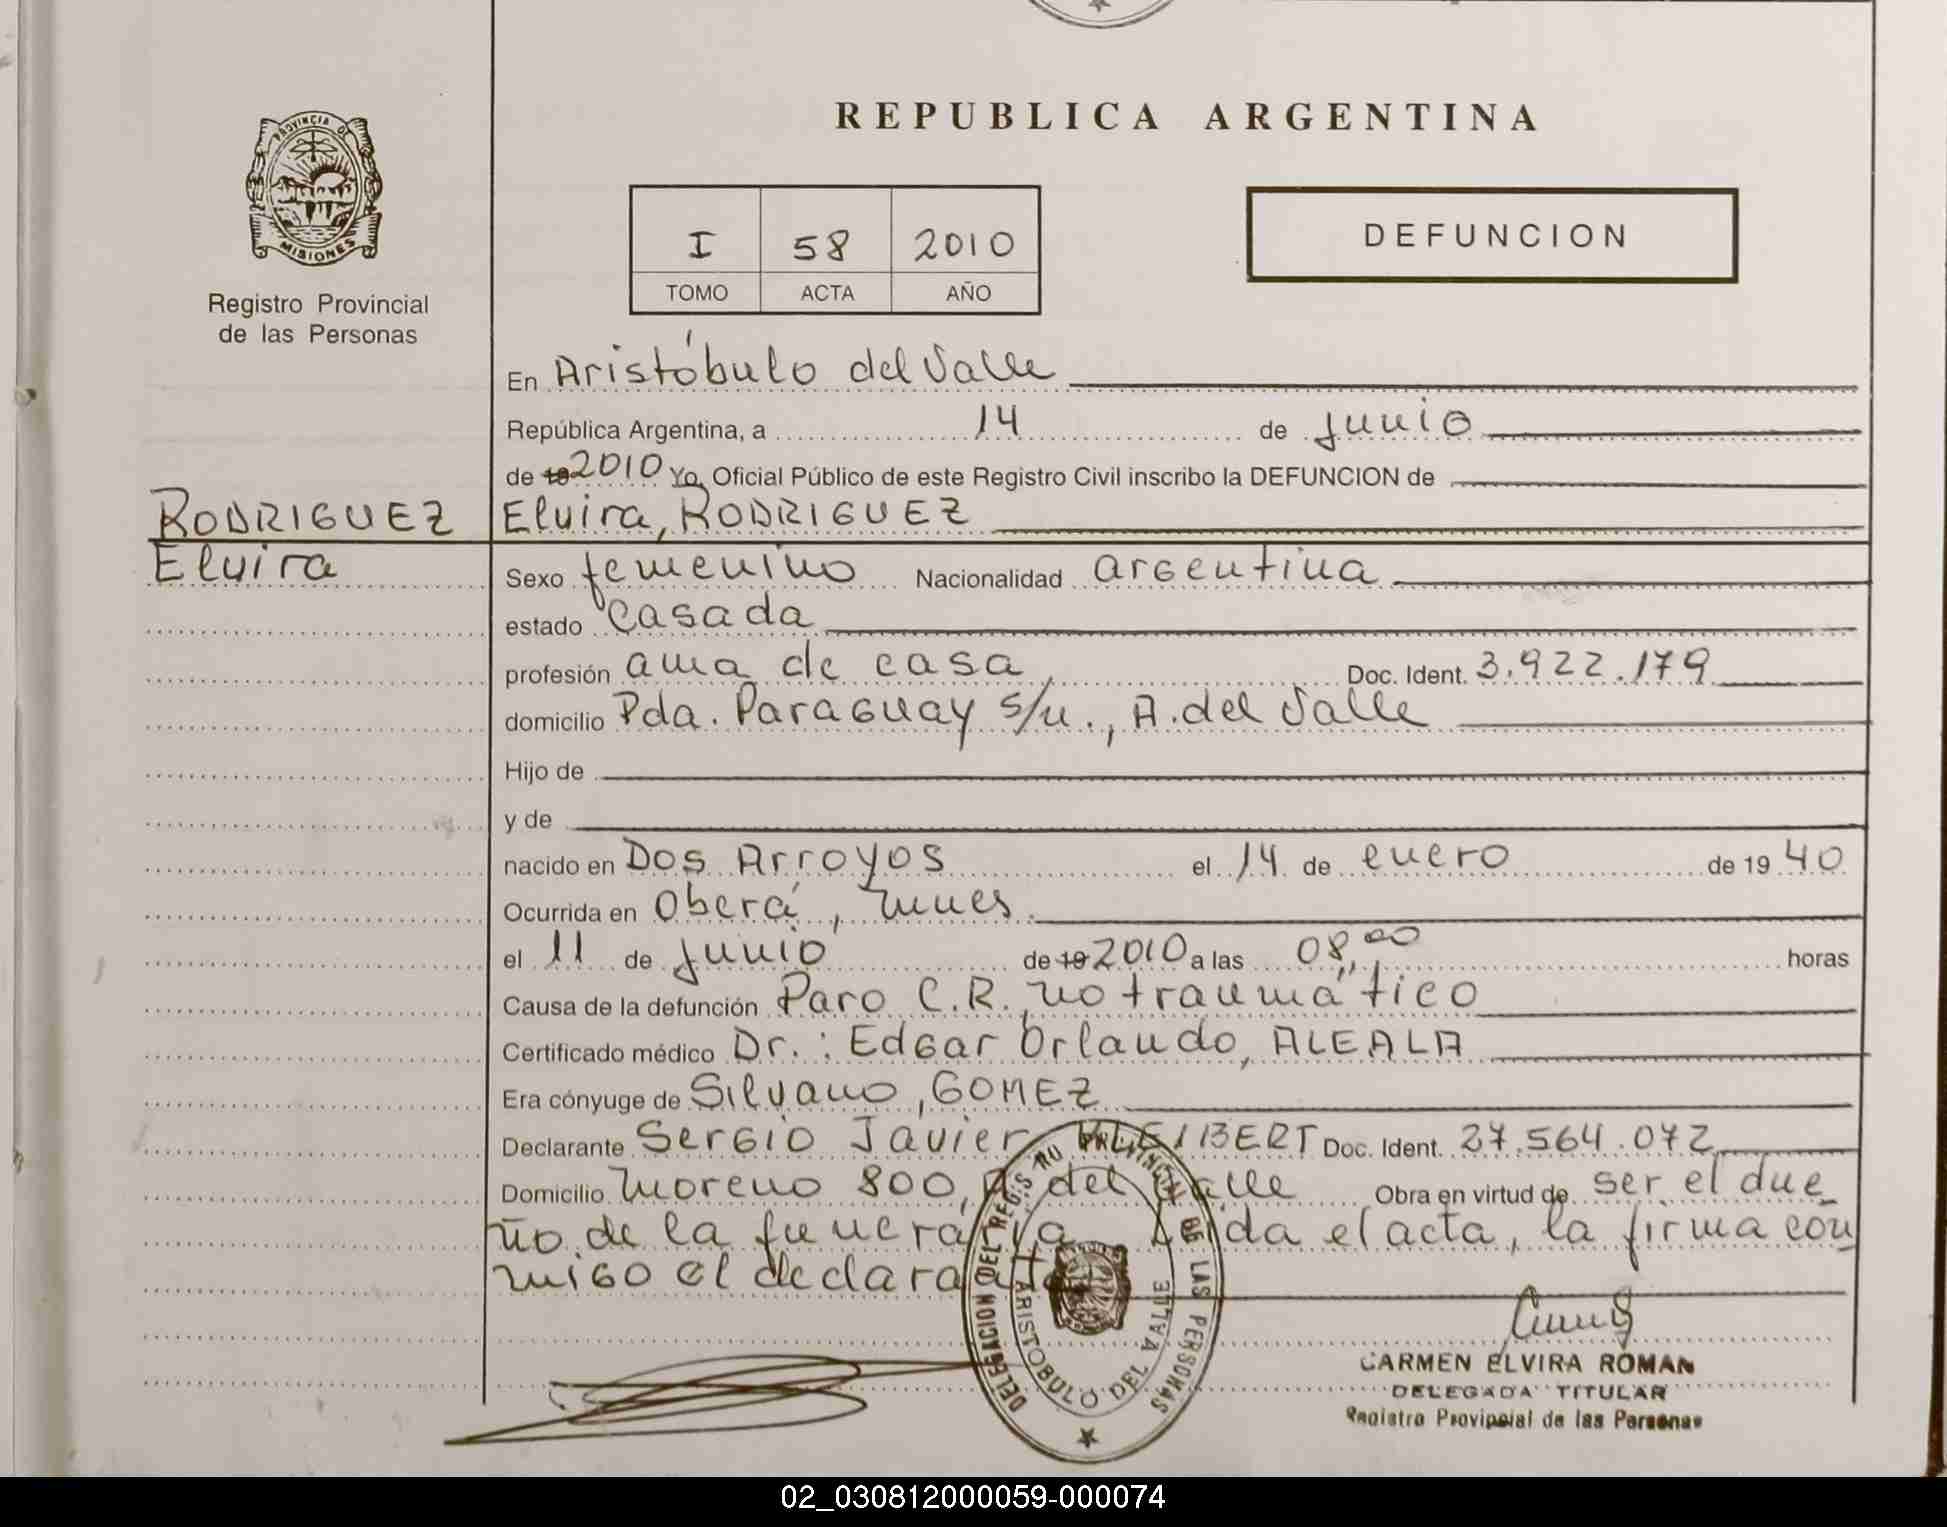 REPUBLICA ARGENTINA
PROVINCIA DE
MISIONES
Registro Provincial
de las Personas
I 58 2010
TOMO ACTA AÑO
DEFUNCION
En Aristóbulo del Valle
República Argentina, a 14 de junio
de 19 2010 Yo, Oficial Público de este Registro Civil inscribo la DEFUNCION de
RODRIGUEZ Elvira, RODRIGUEZ
Elvira
Sexo femenino Nacionalidad argentina
estado casada
profesión ama de casa Doc. Ident. 3.922.179
domicilio Pda. Paraguay s/n., A. del Valle
Hijo de
y de
nacido en Dos Arroyos el 14 de enero de 1940
Ocurrida en Oberá, Mnes
el 11 de junio de 19 2010 a las 08,00 horas
Causa de la defunción Paro C.R. no traumático
Certificado médico Dr.: Edgar Orlando, ALEALA
Era cónyuge de Silvano, GOMEZ
Declarante Sergio Javier Doc. Ident. 27.564.072
Domicilio Moreno 800, A del Valle Obra en virtud de ser el due
ño de la funeraria Leída el acta, la firma con
migo el declarante
DELEGACION DEL REGISTRO PROVINCIAL DE LAS PERSONAS
ARISTOBULO DEL VALLE
CARMEN ELVIRA ROMAN
DELEGADA TITULAR
Registro Provincial de las Personas
02_030812000059-000074